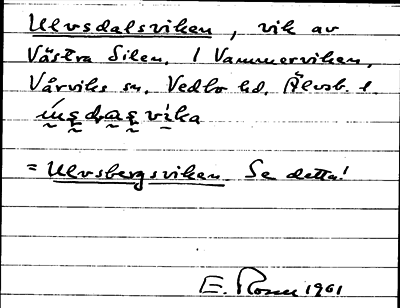 Ulvsdalsviken, vik av
Västra Silen. / Vammerviken,
Vårviks sn, Vedbo hd, Älvsb. l.
= Ulvsbergsviken Se detta!
E. Rosell 1961